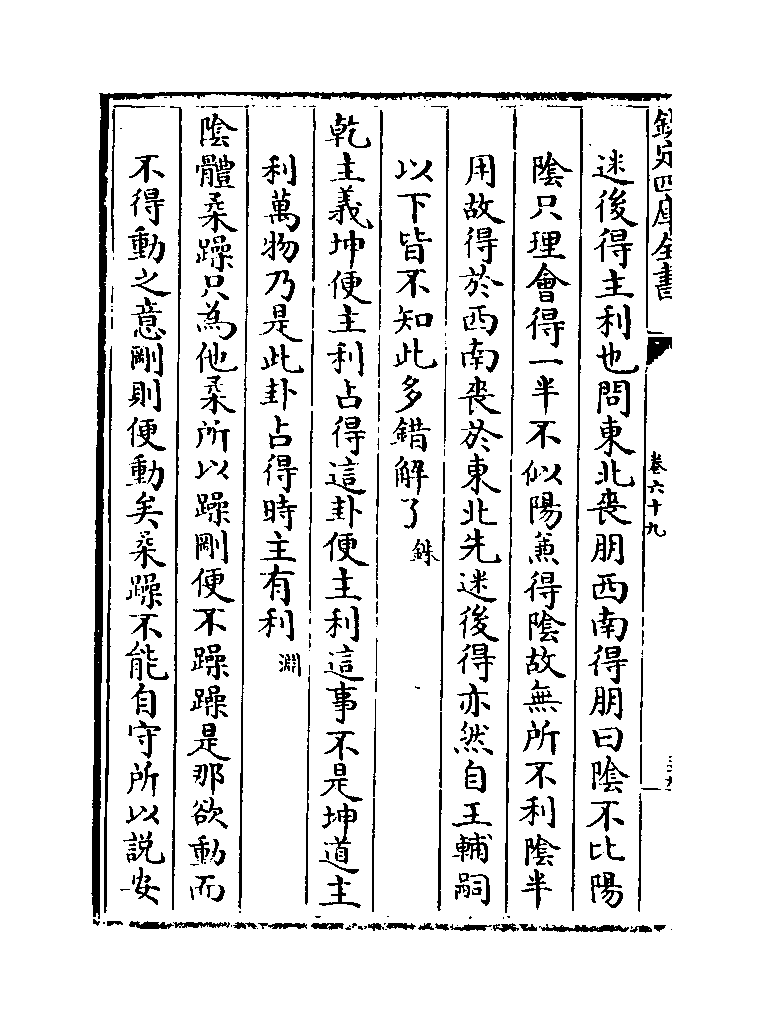 欽定四庫全書
卷六十九
迷後得主利也問東北喪朋西南得朋曰陰不比陽
陰只理會得一半不似陽兼得陰故無所不利陰半
用故得於西南喪於東北先迷後得亦然自王輔嗣
以下皆不知此多錯解了銖
乾主義坤便主利占得這卦便主利這事不是坤道主
利萬物乃是此卦占得時主有利淵
陰體柔躁只為他柔所以躁剛便不躁躁是那欲動而
不得動之意剛則便動矣柔躁不能自守所以說安